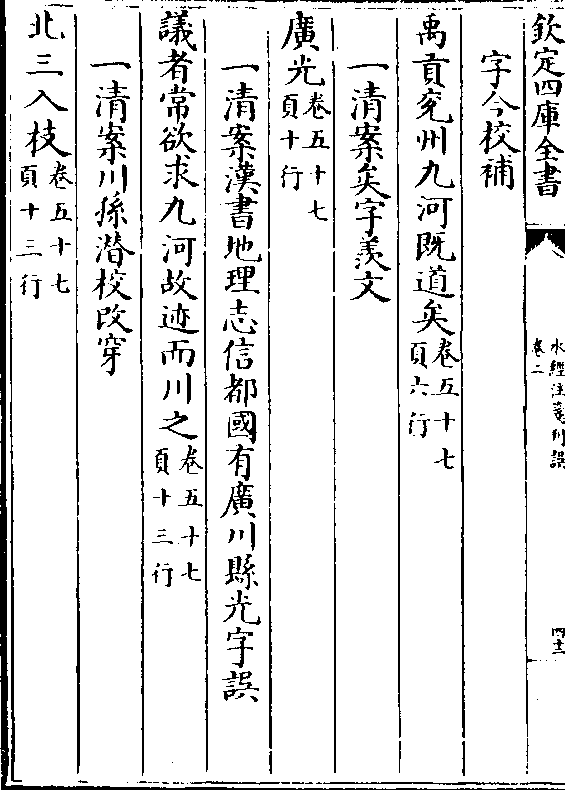 欽定四庫全書
水經注箋刊誤
卷二
字今校補
禹貢兖州九河既道矣卷五十七頁六行
一清案矣字羨文
廣光卷五十七頁十行
一清案漢書地理志信都國有廣川縣光字誤
議者常欲求九河故迹而川之卷五十七頁十三行
一清案川孫潛校改穿
北三入枝卷五十七頁十三行